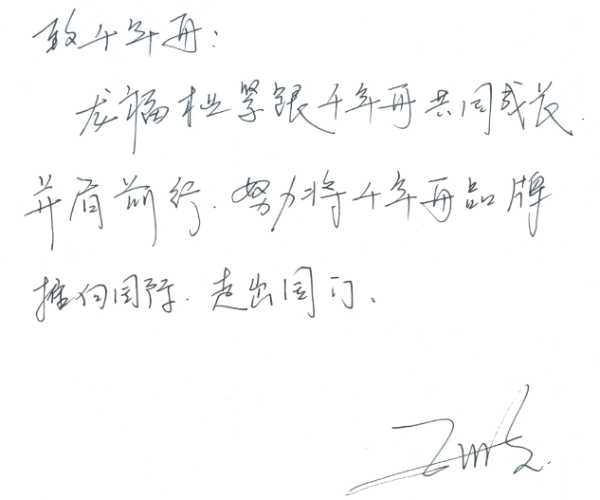 致千年舟:
龙福木业紧跟千年舟共同成长.
并肩前行.努力将千年舟品牌
推向国际.走出国门、